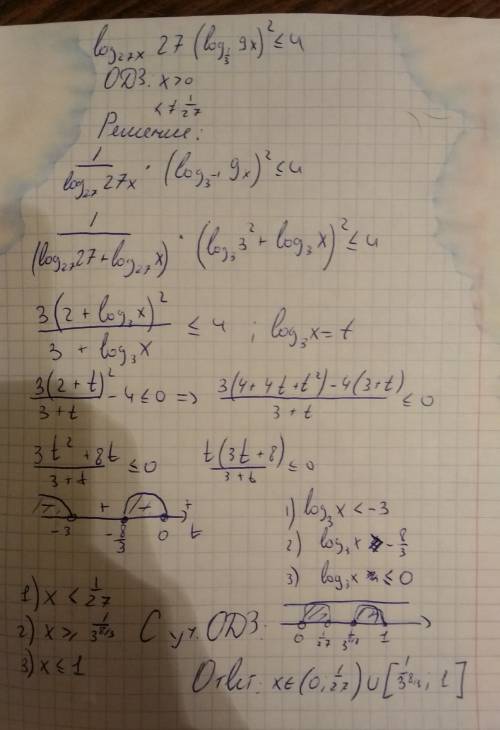 log₂₇ₓ 27 (log_{1/3} 9x)² ≤ 4
ОДЗ. x>0
x ≠ 1/27
Решение:
1/(log₂₇ 27x) · (log₃₋₁ 9x)² ≤ 4
1/(log₂₇27+log₂₇x) · (log₃3² + log₃x)² ≤ 4
3(2 + log₃x)²/(3 + log₃x) ≤ 4 ; log₃x = t
3(2+t)²/(3+t) - 4 ≤ 0 => (3(4+4t+t²)-4(3+t))/(3+t) ≤ 0
(3t²+8t)/(3+t) ≤ 0 t(3t+8)/(3+t) ≤ 0
- + - + t
-3 -8/3 0
1) log₃x < -3
2) log₃x ≥ -8/3
3) log₃x ≤ 0
1) x < 1/27
2) x ≥ 1/3^{8/3}
3) x ≤ 1
С уч. ОДЗ:
0 1/27 1/3^{8/3} 1
Ответ: x∈(0, 1/27) ∪ [1/3^{8/3}; 1]